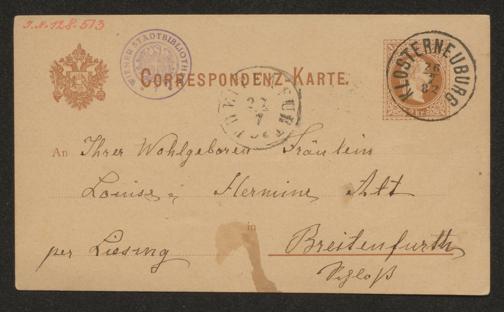 I.N. 128.513
WIENER STADTBIBLIOTHEK
CORRESPONDENZ-KARTE.
KLOSTERNEUBURG
26
82
An Ihrer Wohlgeboren Fräulein
Louise & Hermine Alt
in
per Liesing Breitenfurth
Schloß